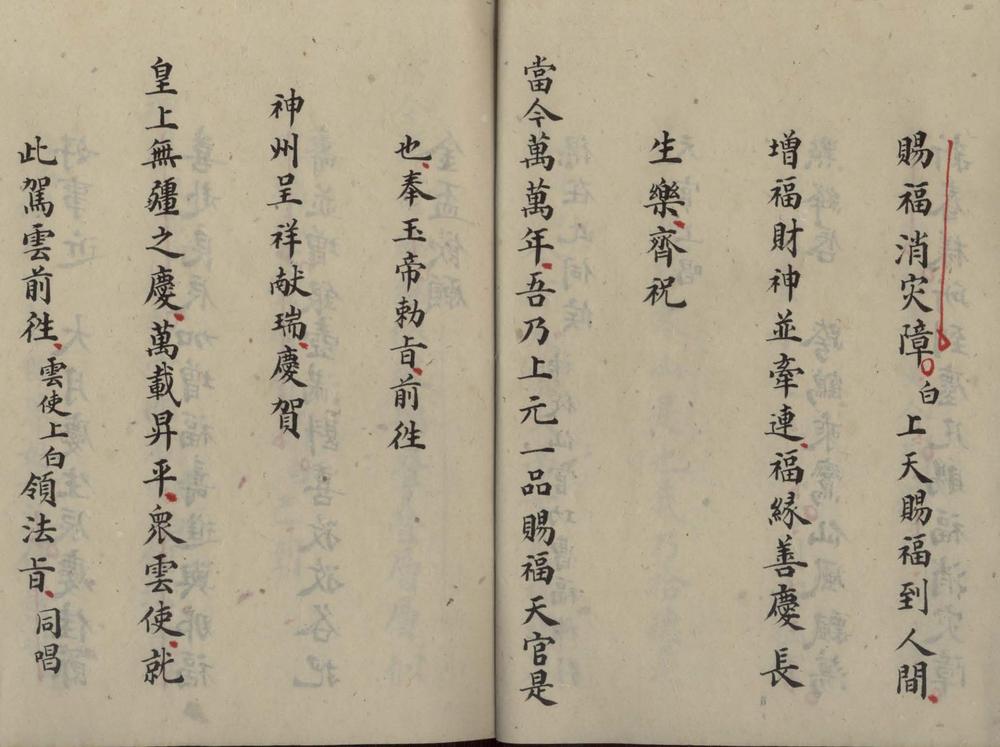 賜福消灾障白上天賜福到人間
增福財神並牽連福緣善慶長
生樂齊祝
當今萬萬年吾乃上元一品賜福天官是
也奉玉帝勅旨前徃
神州呈祥献瑞慶賀
皇上無疆之慶萬載昇平衆雲使就
此駕雲前徃雲使上白領法旨同唱